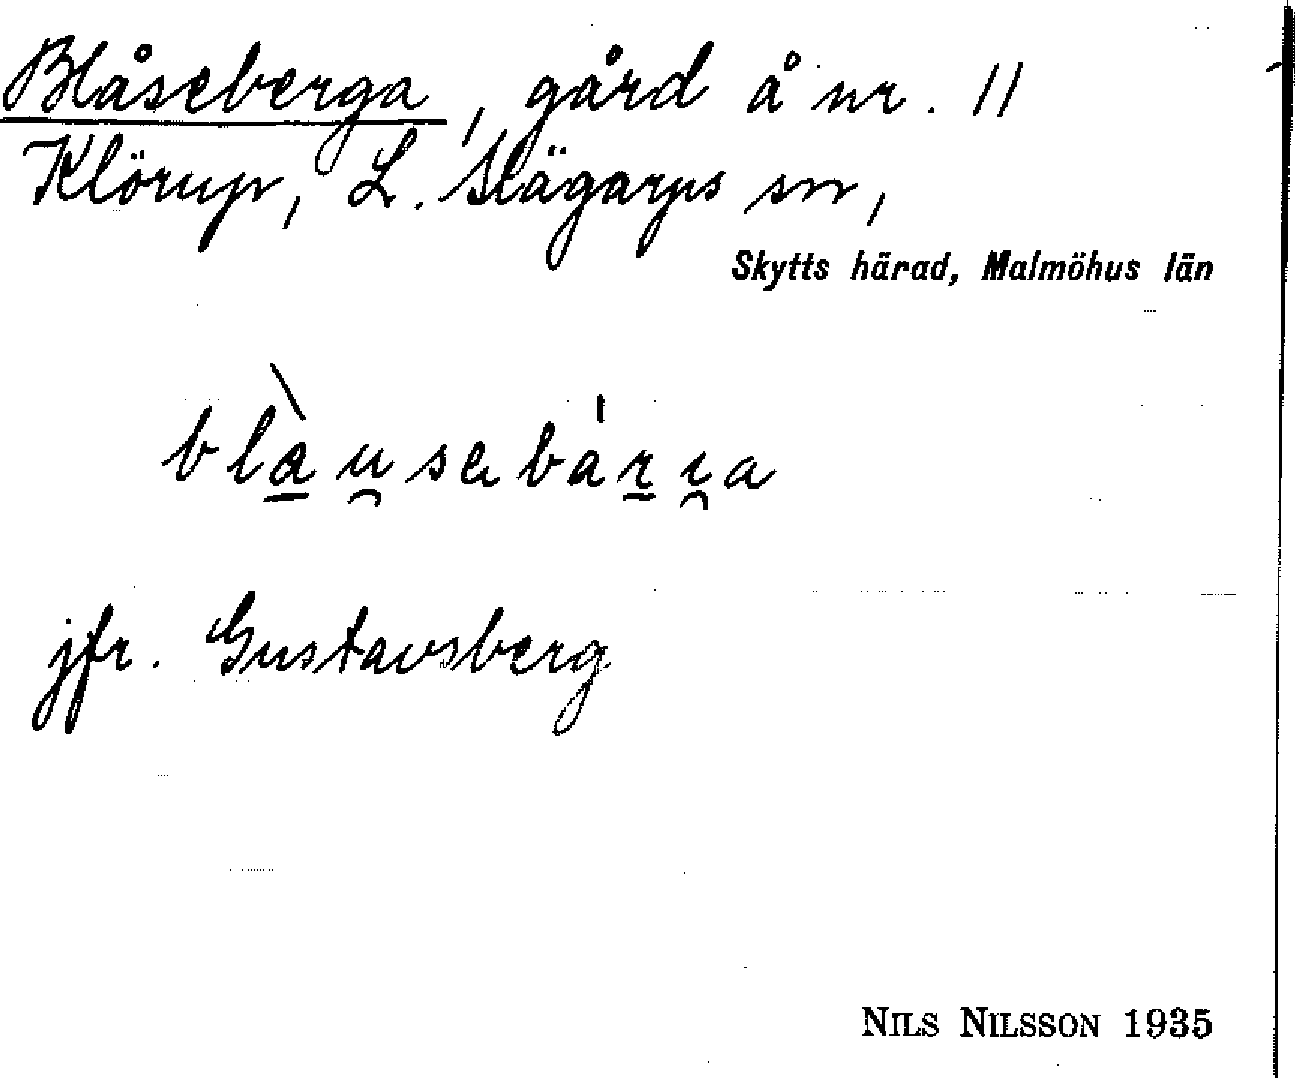 Blåseberga, gård å nr. 11
Klörup, L. Slägarps sn,
Skytts härad, Malmöhus län
blà̱u̯sebȧ́ṟi̯a
jfr. Gustavsberg
NILS NILSSON 1935